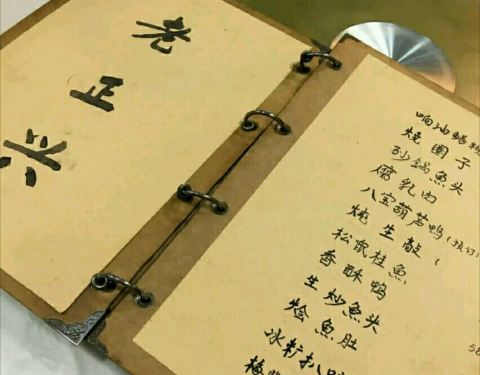 老正兴
响油鳝
烧圈子
砂锅魚头
腐乳肉
八宝葫芦鸭(预订)
炖生敲(
松鼠桂魚
香酥鸭
生炒魚头
烩魚肚
冰籽扒
58